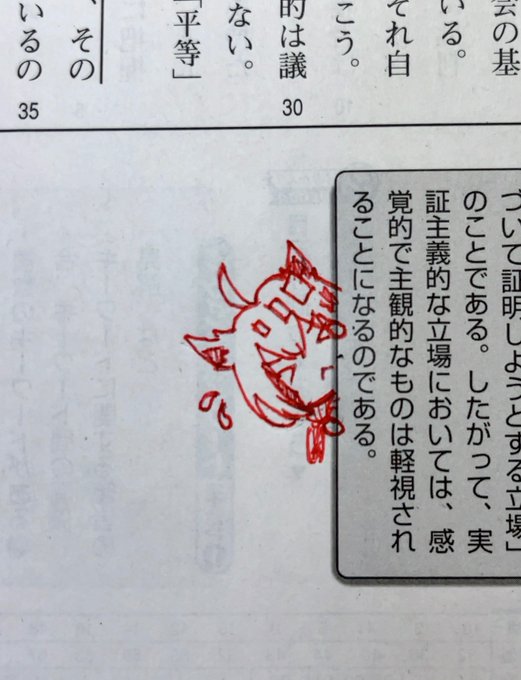 会の基
いる。
それ自
こう。
的は議
30
ない。
「平等」
、その
いるの
35
ついて証明しようとする立場」
のことである。したがって、実
証主義的な立場においては、感
覚的で主観的なものは軽視され
ることになるのである。